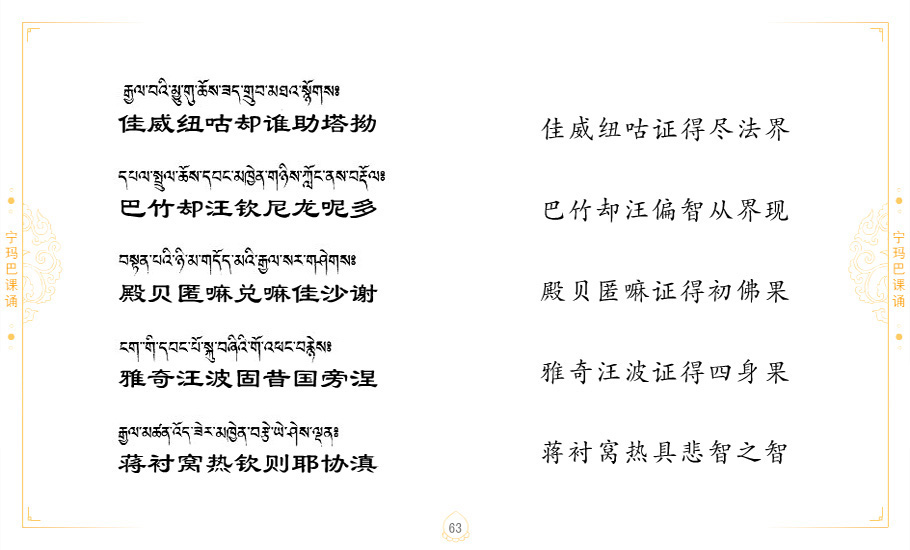 རྒྱལ་བའི་མྱུ་གུ་ཆོས་ཟད་གྲུབ་མཐའ་སྙོགས༔
佳威纽咕却谁助塔拗
佳威纽咕证得尽法界
དཔལ་སྤྲུལ་ཆོས་དབང་མཁྱེན་གཉིས་ཀློང་ནས་བརྡོལ༔
巴竹却汪钦尼龙呢多
巴竹却汪偏智从界现
བསྟན་པའི་ཉི་མ་གདོད་མའི་རྒྱལ་སར་གཤེགས༔
殿贝匿嘛兑嘛佳沙谢
殿贝匿嘛证得初佛果
ངག་གི་དབང་པོ་སྐུ་བཞིའི་གོ་འཕང་བརྙེས༔
雅奇汪波固昔国旁涅
雅奇汪波证得四身果
རྒྱལ་མཚན་འོད་ཟེར་མཁྱེན་བརྩེ་ཡེ་ཤེས་ལྡན༔
蒋衬窝热钦则耶协滇
蒋衬窝热具悲智之智
宁玛巴课诵
宁玛巴课诵
63